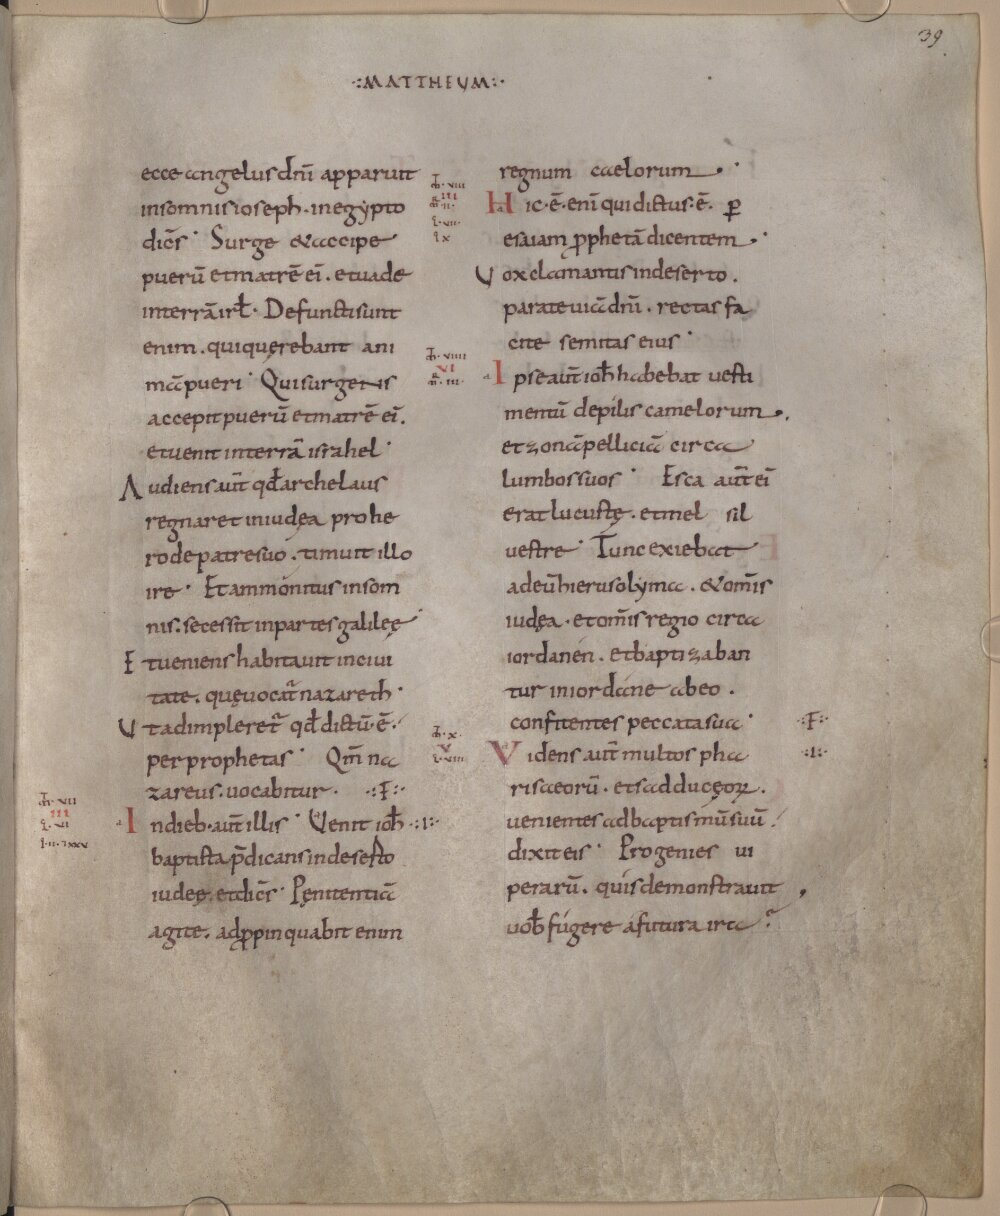 39
·:MATTHEUM:·
ecce angelus dn̄i apparuit
insomnis ioseph · in egypto
dicēs · Surge & accipe
puerū et matrē ei᷒ · et uade
in terrā isrł · Defuncti sunt
enim · qui querebant ani
mā pueri · Qui surgens
accepit puerū et matrē ei᷒ ·
et uenit in terrā israhel ·
Audiens aut̄ qđ archelaus
regnaret in iudęa pro he
rode patre suo · timuit illo
ire · Et ammonitus in som
nis · secessit in partes galileę ·
Et ueniens habitauit in ciui
tate · quę uocat᷑ nazareth ·
Ut adimpleret᷑ qđ dictū · ē ·
per prophetas · Qm̄ na
zareus · uocabitur · ·:F:·
m̄ · VII
III
l · VI
l · II · LXXV
In dieb · aut̄ illis · Uenit ioħ ·:I:·
baptista p̄dicans in deserto
iudeę · et dicēs · Pęnitentiā
agite · adꝓpinquabit enim
regnum caelorum ·
m̄ · VIII
III
m̄ · II ·
l · VII ·
I X
Hic · ē · eni᷒ qui dictus · ē · ꝑ
esaiam ꝓphetā dicentem ·
Uox clamantis in deserto ·
parate uiā dn̄i · rectas fa
cite semitas eius ·
m̄ · VIIII
VI
m̄ · III ·
Ipse aut̄ ioħ habebat uesti
mentū de pilis camelorum ·
et zonā pelliciā circa
lumbos suos · Esca aut̄ ei᷒
erat lucustę · et mel sil
uestre · Tunc exiebat
ad eū hierusolyma · & om̄is
iudęa · et om̄is regio circa
iordanen · et baptizaban
tur in iordane ab eo ·
confitentes peccata sua · ·:F:·
m̄ · X ·
V
l · VIII
Videns aut̄ multos pha ·:I:·
risaeorū · et sadduceoꝝ ·
uenientes ad baptismū suū ·
dixit eis · Progenies ui
perarū · quis demonstrauit
uoƀ fugere a futura ira ?